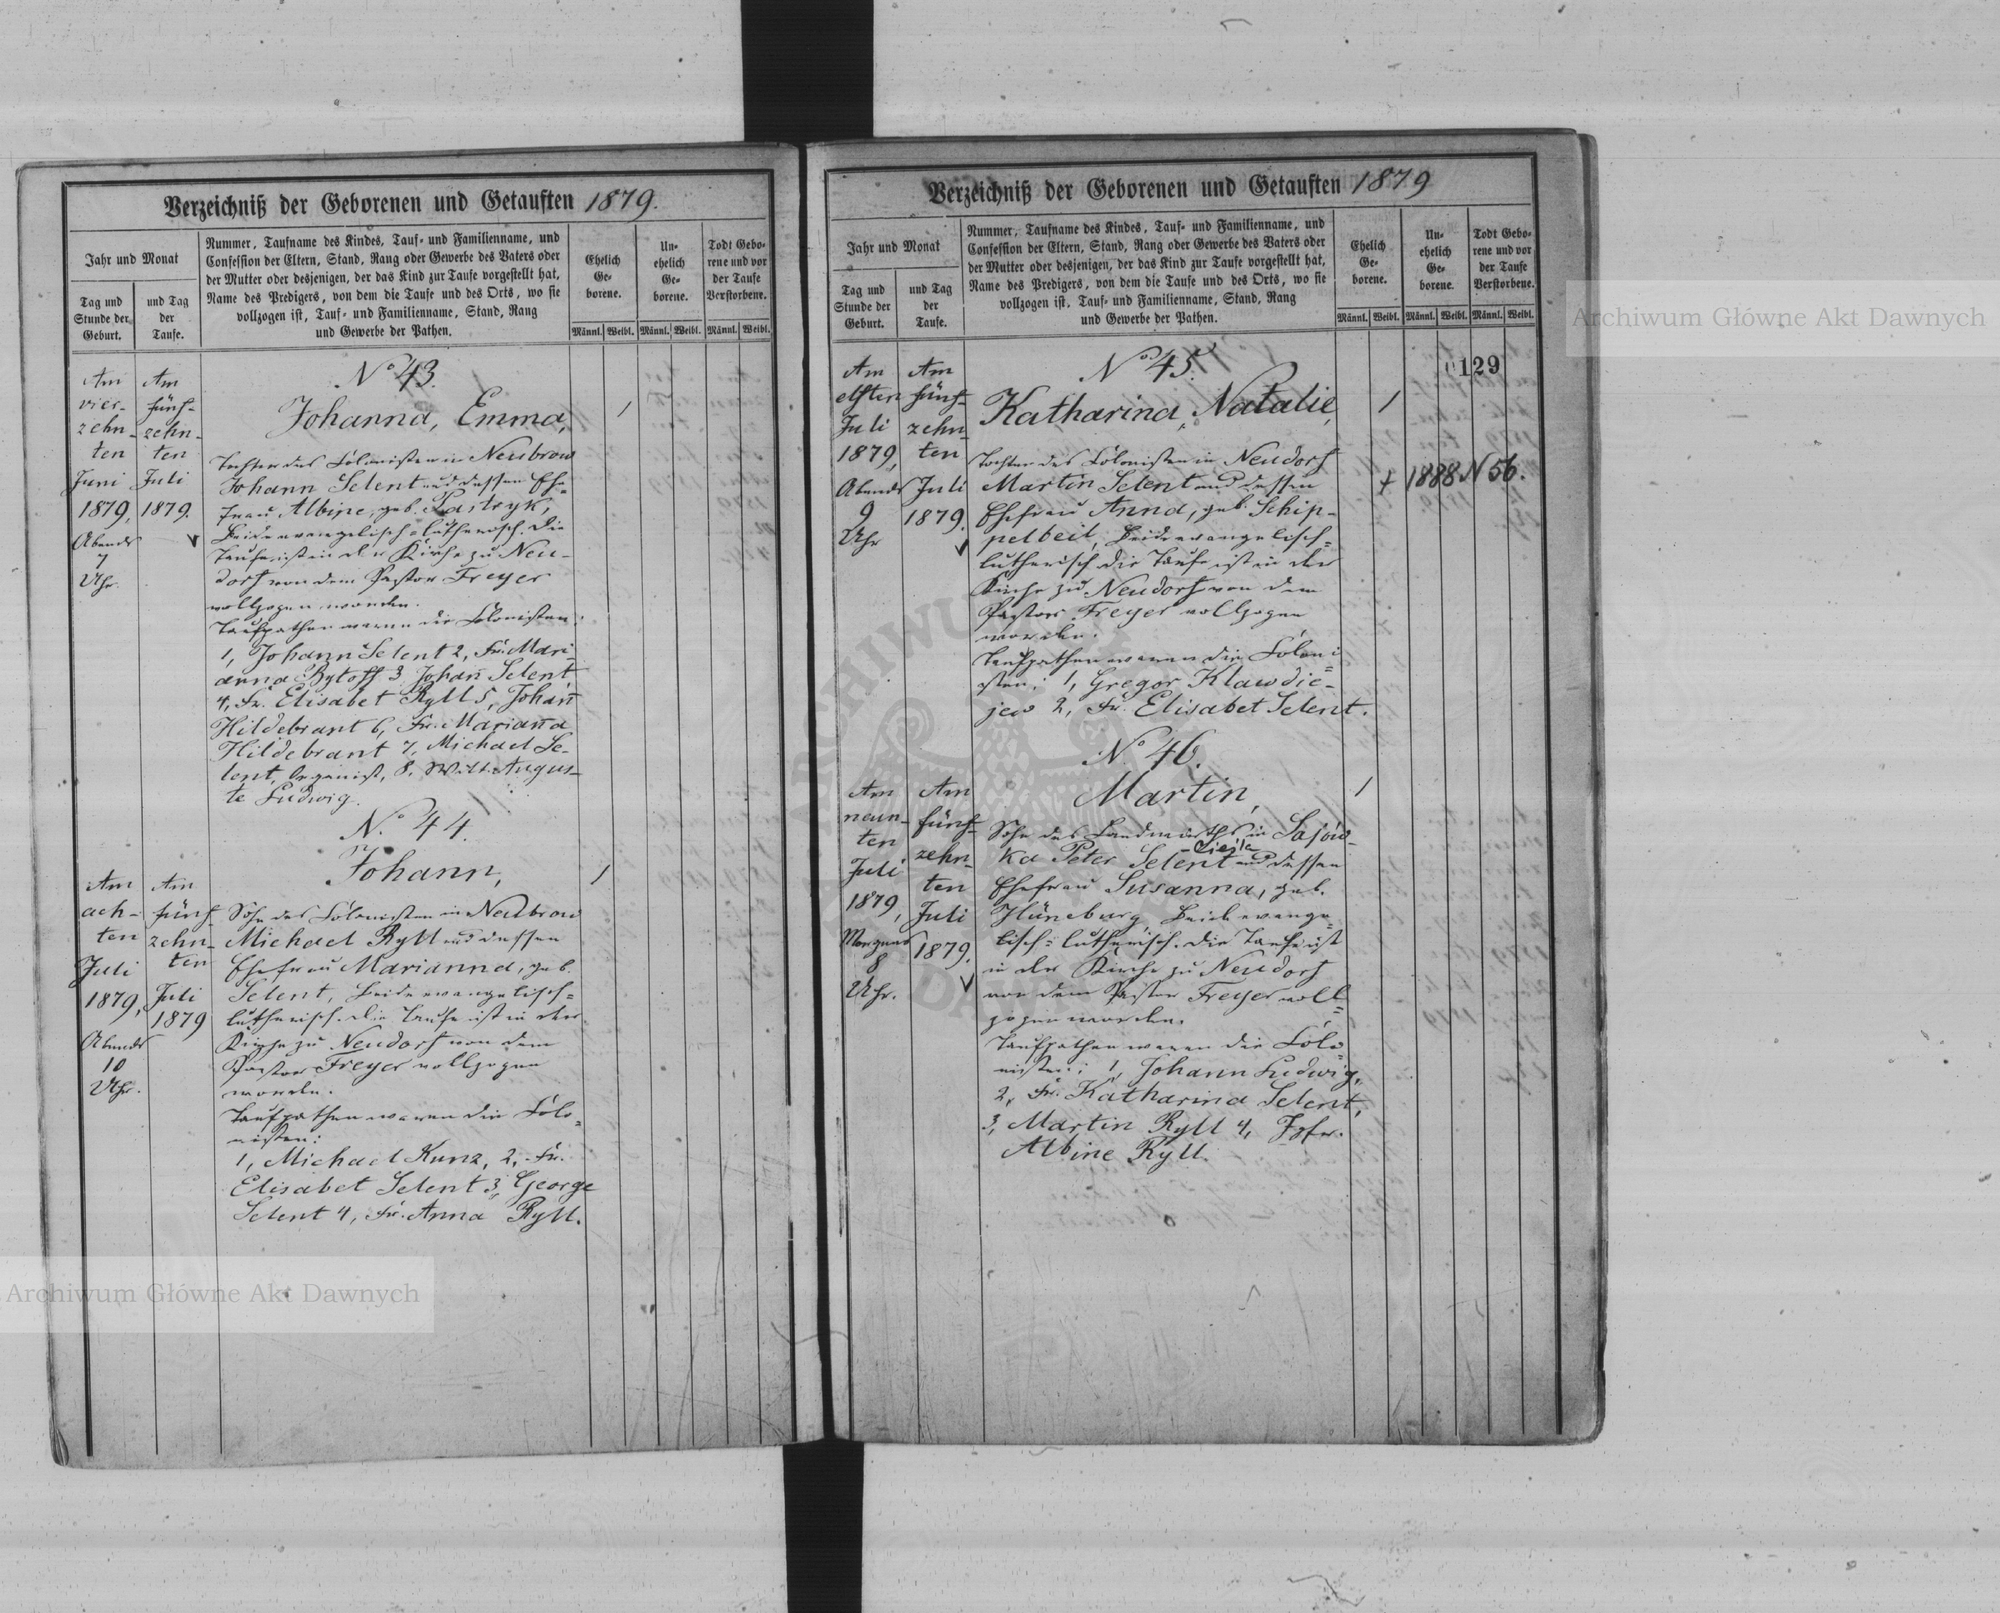 Verzeichniß der Geborenen und Getauften 1879.
Jahr und Monat
Tag und
Stunde der
Geburt.
und Tag
der
Taufe.
Nummer, Taufname des Kindes, Tauf- und Familienname, und
Confession der Eltern, Stand, Rang oder Gewerbe des Vaters oder
der Mutter oder desjenigen, der das Kind zur Taufe vorgestellt hat,
Name des Predigers, von dem die Taufe und des Orts, wo sie
vollzogen ist, Tauf- und Familienname, Stand, Rang
und Gewerbe der Pathen.
Ehelich
Ge-
borene.
Un-
ehelich
Ge-
borene.
Todt Gebo-
rene und vor
der Taufe
Verstorbene.
Männl. Weibl. Männl. Weibl. Männl. Weibl.
Am
vier-
zehn-
ten
Juni
1879,
Abends
7
Uhr.
Am
fünf-
zehn-
ten
Juli
1879.
No 43.
Johanna, Emma,
Tochter des Colonisten in Neubrow
Johann Selent und dessen Ehe-
frau Albine, geb. Lastryk,
Beide evangelisch-lutherisch. Die
Taufe ist in der Kirche zu Neu-
dorf von dem Pastor Freyer
vollzogen worden.
Taufpathen waren die Colonisten:
1, Johann Selent 2, Fr. Mari
anna Bytoff 3, Johan̄ Selent,
4, Fr. Elisabet Ryll 5, Johan̄
Hildebrant 6, Fr. Marian̄a
Hildebrant 7, Michael Se-
lent, Organist, 8, Augus-
te Ludwig.
1
No 44.
Johann,
1
Am
ach-
ten
Juli
1879,
Abends
10
Uhr.
Am
fünf-
zehn-
ten
Juli
1879
Sohn des Colonisten in Neubrow
Michael Ryll und dessen
Ehefrau Marianna, geb.
Selent, Beide evangelisch-
lutherisch. Die Taufe ist in der
Kirche zu Neudorf von dem
Pastor Freyer vollzogen
worden.
Taufpathen waren die Colo-
nisten:
1, Michael Kunz, 2, Fr.
Elisabet Selent 3, George
Selent 4, Fr. Anna Ryll.
Verzeichniß der Geborenen und Getauften 1879
Jahr und Monat
Tag und
Stunde der
Geburt.
und Tag
der
Taufe.
Nummer, Taufname des Kindes, Tauf- und Familienname, und
Confession der Eltern, Stand, Rang oder Gewerbe des Vaters oder
der Mutter oder desjenigen, der das Kind zur Taufe vorgestellt hat,
Name des Predigers, von dem die Taufe und des Orts, wo sie
vollzogen ist, Tauf- und Familienname, Stand, Rang
und Gewerbe der Pathen.
Ehelich
Ge-
borene.
Un-
ehelich
Ge-
borene.
Todt Gebo-
rene und vor
der Taufe
Verstorbene.
Männl. Weibl. Männl. Weibl. Männl. Weibl.
0129
Am
elften
Juli
1879,
Abends
9
Uhr
Am
fünf-
zehn-
ten
Juli
1879.
No 45.
Katharina, Natalie,
Tochter des Colonisten in Neudorf
Martin Selent und dessen
Ehefrau Anna, geb. Schip-
pelbeil, Beide evangelisch-
lutherisch. Die Taufe ist in der
Kirche zu Neudorf von dem
Pastor Freyer vollzogen
worden.
Taufpathen waren die Coloni
sten: 1, Gregor Klawdie-
jew 2, Fr. Elisabet Selent.
1
+ 1888 N 56.
No 46.
Martin,
1
Am
neun-
ten
Juli
1879,
Morgens
8
Uhr.
Am
fünf-
zehn-
ten
Juli
1879.
Sohn des Landwirths in Sajów-
ka Peter Selent und dessen
Ehefrau Susanna, geb.
Hüneburg, Beide evange-
lisch-lutherisch. Die Taufe ist
in der Kirche zu Neudorf
von dem Pastor Freyer voll
zogen worden.
Taufpathen waren die Colo
nisten: 1, Johann Ludwig,
2, Fr. Katharina Selent,
3, Martin Ryll 4, Jgfr.
Albine Ryll.
Archiwum Główne Akt Dawnych
Archiwum Główne Akt Dawnych